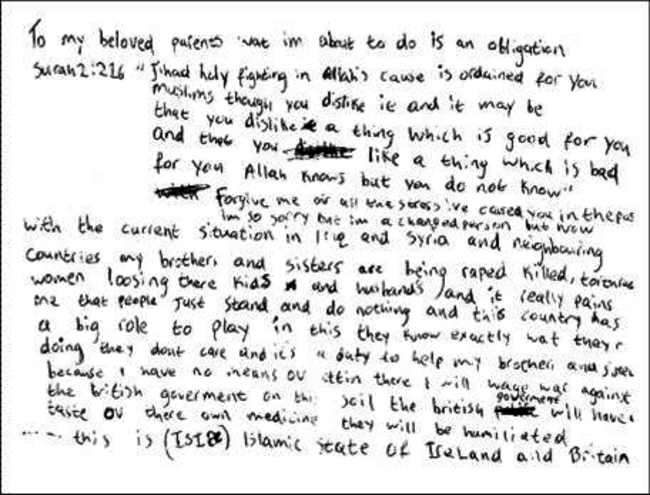 To my beloved parents wat im about to do is an obligation
Surah 2:216 "Jihad holy fighting in Allah's cause is ordained for you
muslims though you dislike it and it may be
that you dislike a thing which is good for you
and that you like a thing which is bad
for you Allah knows but you do not know"
forgive me for all the stress ive caused you in the past
im so sorry but im a changed person but now
with the current situation in Iriq and Syria and neighbouring
countries my brothers and sisters are being raped killed, tortured
women loosing there kids and husbands and it really pains
me that people just stand and do nothing and this country has
a big role to play in this they know exactly wat they'r
doing they dont care and it's a duty to help my brothers and sisters
because I have no means ov there I will wage war against
the british goverment on this soil the british government will have a
taste ov there own medicine they will be humiliated
this is (ISIB) Islamic state of Ireland and Britain